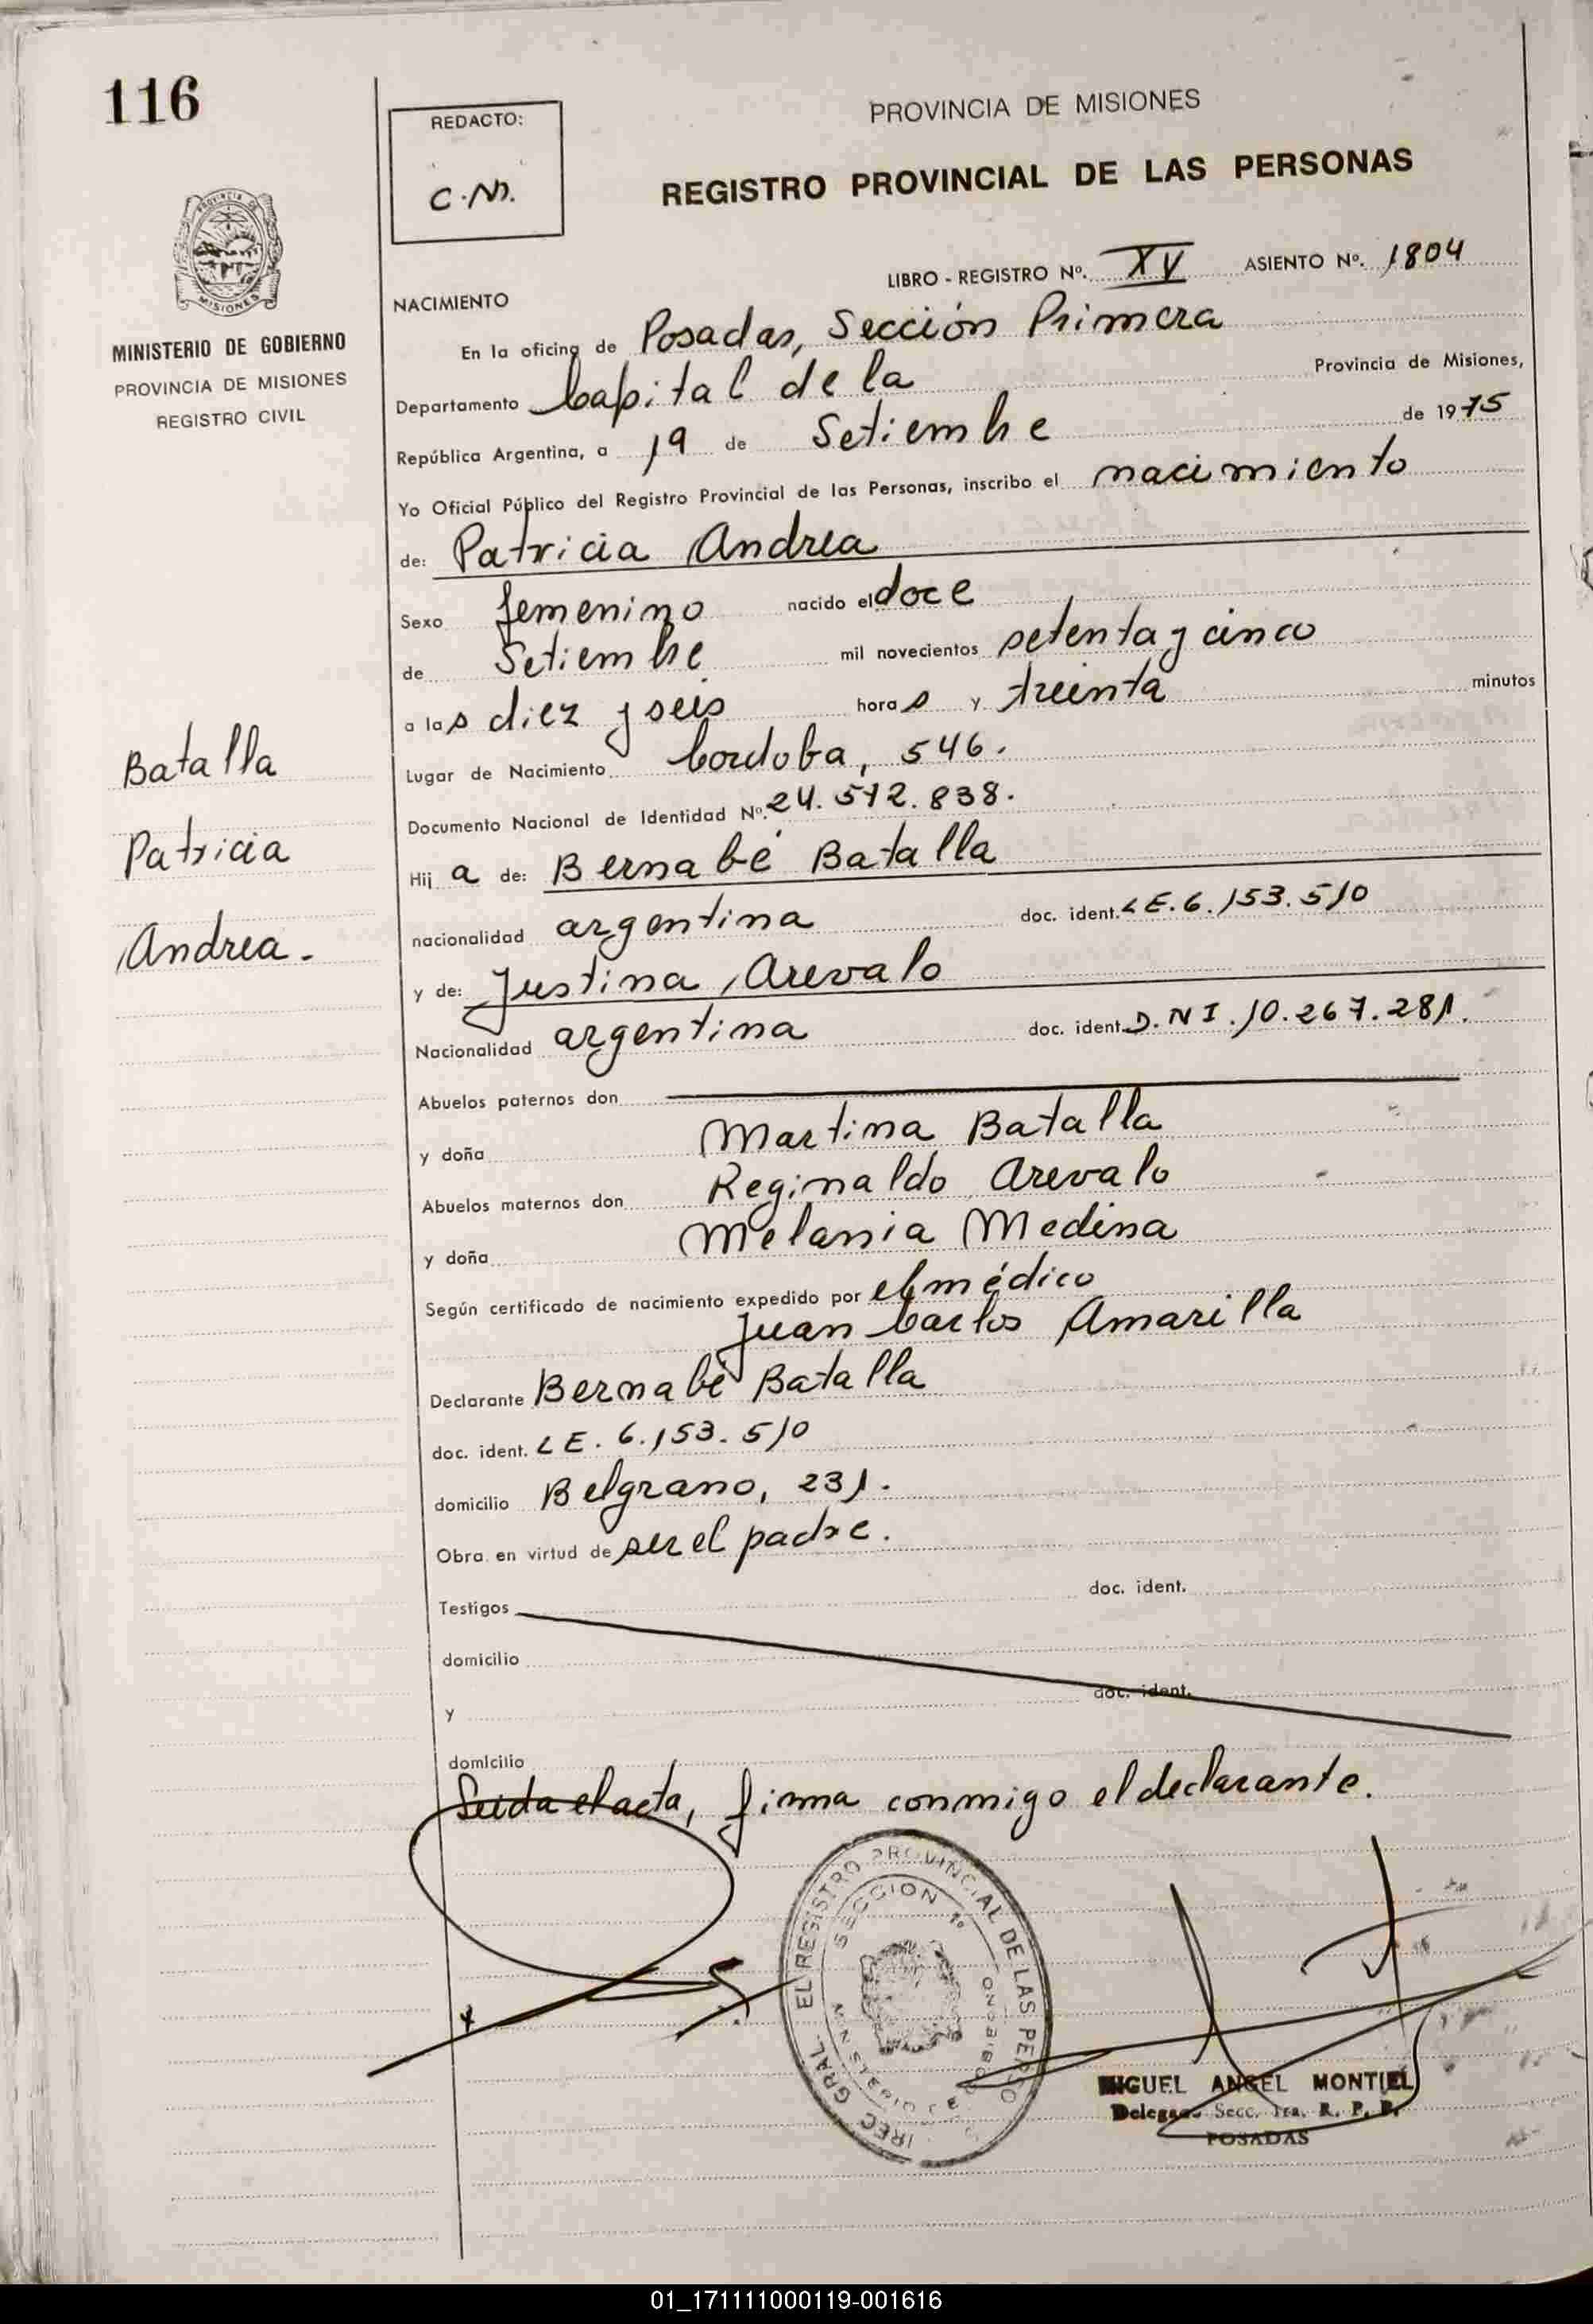 116
REDACTO:
C.N.
PROVINCIA DE MISIONES
REGISTRO PROVINCIAL DE LAS PERSONAS
MINISTERIO DE GOBIERNO
PROVINCIA DE MISIONES
REGISTRO CIVIL
LIBRO - REGISTRO Nº. XV ASIENTO Nº. 1804
NACIMIENTO
En la oficina de Posadas, Sección Primera
Departamento Capital de la Provincia de Misiones,
República Argentina, a 19 de Setiembre de 1975
Yo Oficial Público del Registro Provincial de las Personas, inscribo el nacimiento
de: Patricia Andrea
Sexo femenino nacido el doce
de Setiembre mil novecientos setenta y cinco
a las diez y seis horas y treinta minutos
Lugar de Nacimiento Cordoba, 546.
Documento Nacional de Identidad Nº. 24.572.838.
Batalla
Patricia
Andrea.
Hija de: Bernabé Batalla
nacionalidad argentina doc. ident. LE. 6.153.510
y de: Justina Arevalo
Nacionalidad argentina doc. ident. D.N I. 10.267.281.
Abuelos paternos don
y doña Martina Batalla
Abuelos maternos don Reginaldo Arevalo
y doña Melania Medina
Según certificado de nacimiento expedido por el médico
Juan Carlos Amarilla
Declarante Bernabé Batalla
doc. ident. LE. 6.153.510
domicilio Belgrano, 231.
Obra en virtud de ser el padre.
Testigos doc. ident.
domicilio
y doc. ident.
domicilio
Leida el acta, firma conmigo el declarante.
EL REGISTRO PROVINCIAL DE LAS PERSO
SECCION 1º
MIGUEL ANGEL MONTIEL
Delegado Secc. 1ra. R. P. P.
POSADAS
01_171111000119-001616